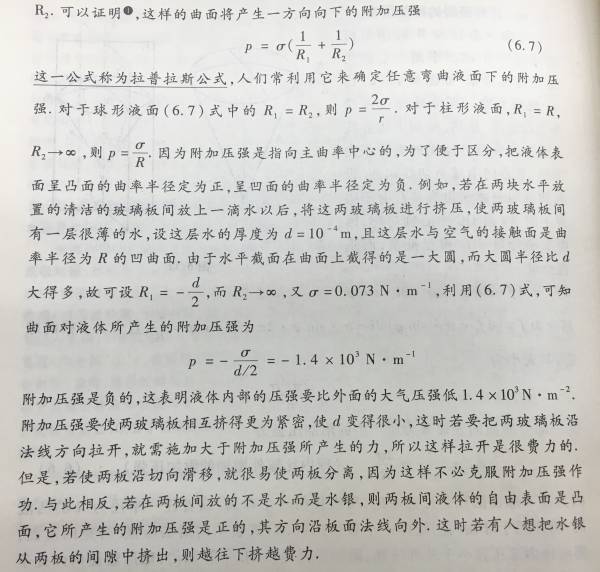 R₂. 可以证明❶,这样的曲面将产生一方向向下的附加压强
p = σ(1/R₁ + 1/R₂) (6.7)
这一公式称为拉普拉斯公式,人们常利用它来确定任意弯曲液面下的附加压
强. 对于球形液面(6.7)式中的 R₁ = R₂, 则 p = 2σ/r. 对于柱形液面,R₁ = R,
R₂→∞, 则 p = σ/R. 因为附加压强是指向主曲率中心的,为了便于区分,把液体表
面呈凸面的曲率半径定为正,呈凹面的曲率半径定为负. 例如,若在两块水平放
置的清洁的玻璃板间放上一滴水以后,将这两玻璃板进行挤压,使两玻璃板间
有一层很薄的水,设这层水的厚度为 d = 10⁻⁴ m,且这层水与空气的接触面是曲
率半径为 R 的凹曲面. 由于水平截面在曲面上截得的是一大圆,而大圆半径比 d
大得多,故可设 R₁ = -d/2,而 R₂→∞,又 σ = 0.073 N·m⁻¹,利用(6.7)式,可知
曲面对液体所产生的附加压强为
p = -σ/(d/2) = -1.4 × 10³ N·m⁻¹
附加压强是负的,这表明液体内部的压强要比外面的大气压强低 1.4 × 10³ N·m⁻².
附加压强要使两玻璃板相互挤得更为紧密,使 d 变得很小,这时若要把两玻璃板沿
法线方向拉开,就需施加大于附加压强所产生的力,所以这样拉开是很费力的.
但是,若使两板沿切向滑移,就很易使两板分离,因为这样不必克服附加压强作
功. 与此相反,若在两板间放的不是水而是水银,则两板间液体的自由表面是凸
面,它所产生的附加压强是正的,其方向沿板面法线向外. 这时若有人想把水银
从两板的间隙中挤出,则越往下挤越费力.